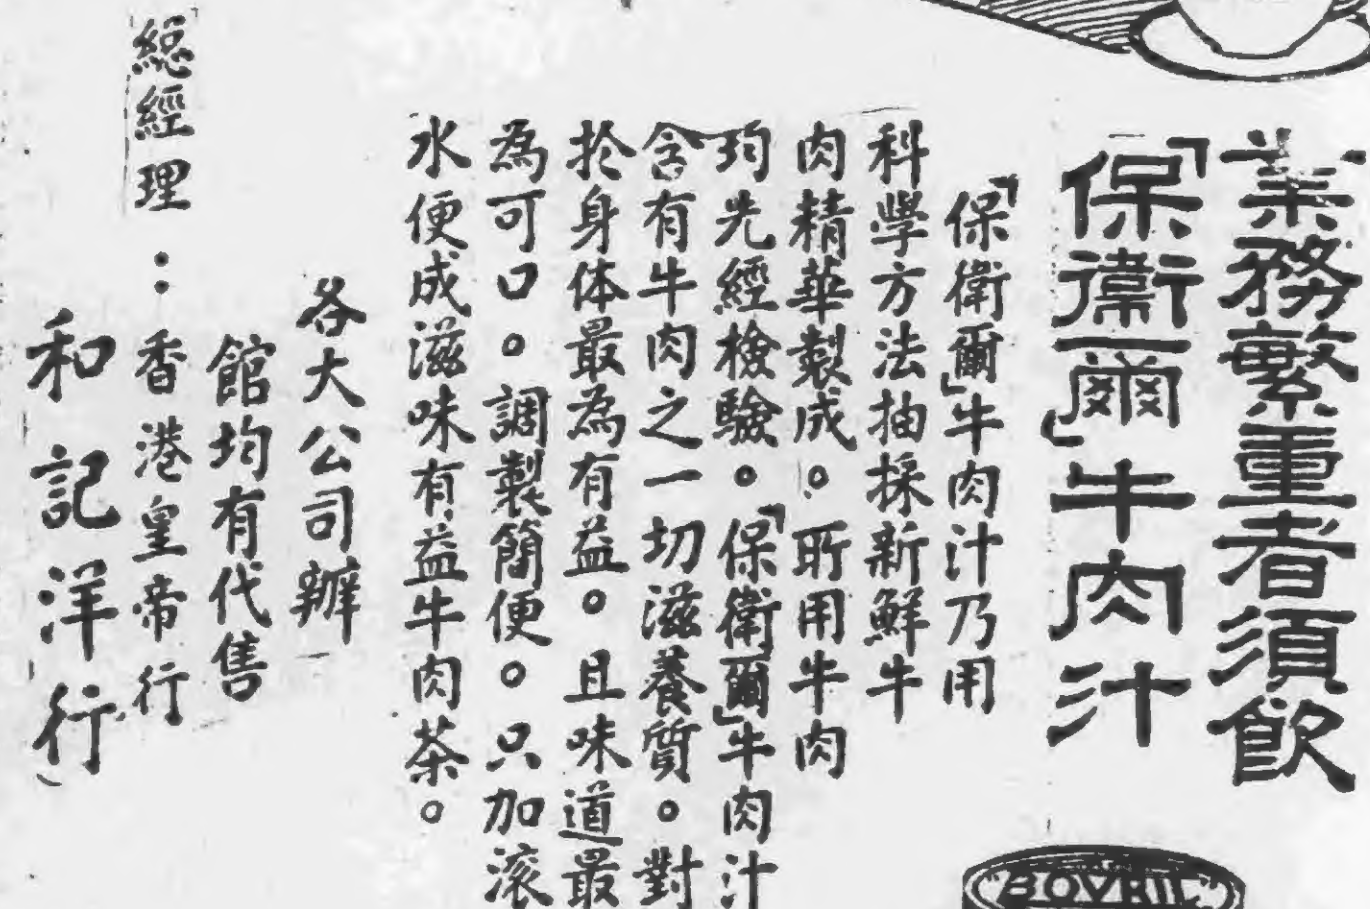 業務繁重者須飲
「保衛爾」牛肉汁
「保衛爾」牛肉汁乃用
科學方法抽採新鮮牛
肉精華製成。所用牛肉
均先經檢驗。「保衛爾」牛肉汁
含有牛肉之一切滋養質。對
於身体最為有益。且味道最
為可口。調製簡便。只加滚
水便成滋味有益牛肉茶。
各大公司辦
館均有代售
總經理：香港皇帝行
和記洋行
BOVRIL